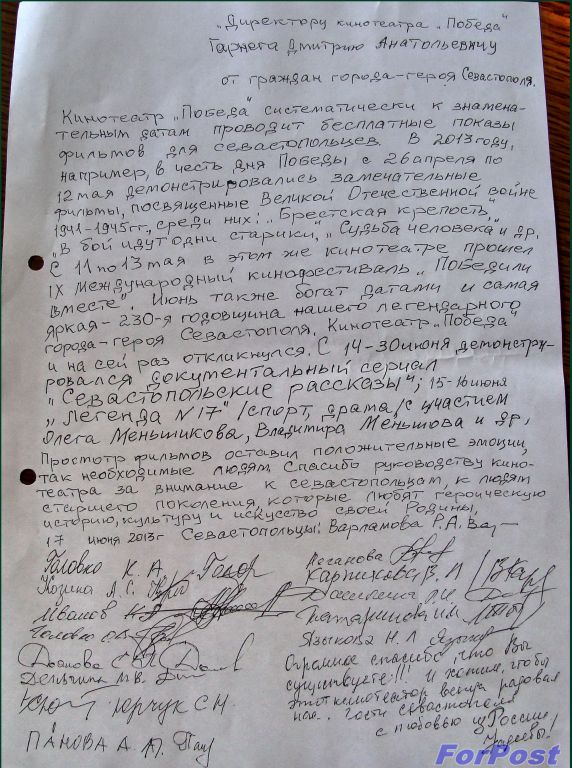 „Директору кинотеатра „Победа"
Гарнега Дмитрию Анатольевичу
от граждан города-героя Севастополя.
Кинотеатр „Победа" систематически к знамена-
тельным датам проводит бесплатные показы
фильмов для севастопольцев. В 2013 году,
например, в честь дня Победы с 26 апреля по
12 мая демонстрировались замечательные
фильмы, посвященные Великой Отечественной войне
1941-1945гг., среди них: „Брестская крепость",
„В бой идут одни старики", „Судьба человека" и др.
С 11 по 13 мая в этом же кинотеатре прошел
IX Международный кинофестиваль „Победили
вместе". Июнь также богат датами и самая
яркая - 230-я годовщина нашего легендарного
города-героя Севастополя. Кинотеатр „Победа"
и на сей раз откликнулся. С 14-30 июня демонстри-
ровался документальный сериал
„Севастопольские рассказы"; 15-16 июня
„Легенда N17" /спорт, драма/ с участием
Олега Меньшикова, Владимира Меньшова и др.
Просмотр фильмов оставил положительные эмоции,
так необходимые людям. Спасибо руководству кино-
театра за внимание к севастопольцам, к людям
старшего поколения, которые любят героическую
историю, культуру и искусство своей Родины.
17 июня 2013г Севастопольцы: Варламова Р.А. Вар
Головко К. А.
Козина Л. С.
Иванов
Головко
Доанова С
Дельчина М.В.
Юрчук С.Н.
ПАНОВА А. М. Пан
Карпикова В. Л
Языкова Н. Л
Огромное спасибо, что Вы
существуете!!! И хотим, чтобы
этот кинотеатр всегда радовал
нас. Гости Севастополя
с любовью из России.
ForPost